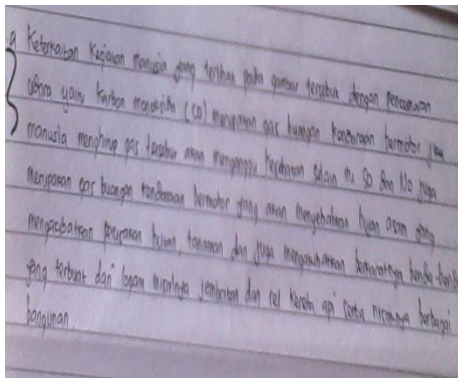 a. Keterkaitan kegiatan manusia yang terlihat pada gambar tersebut dengan pencemaran
udara yaitu karbon monoksida (CO) merupakan gas buangan kendaraan bermotor jika
manusia menghirup gas tersebut akan mengganggu kesehatan selain itu SO dan NO juga
merupakan gas buangan kendaraan bermotor yang akan menyebabkan hujan asam yang
mengakibatkan kerusakan hutan, tanaman dan juga mengakibatkan berkaratnya benda
yang terbuat dari logam misalnya jembatan dan rel kereta api serta rusaknya berbagai
bangunan.